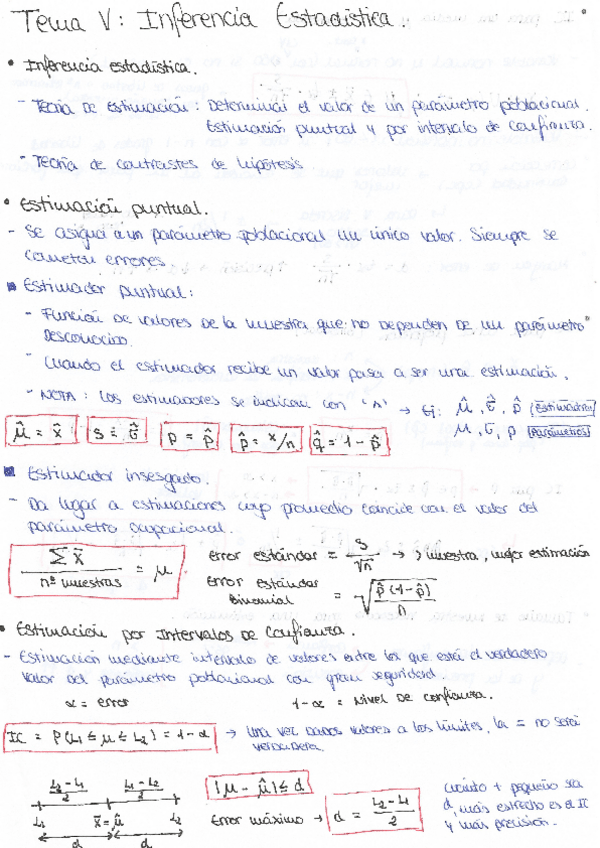 Tema V: Inferencia Estadística.
• Inferencia estadística.
- Teoría de Estimación: Determinar el valor de un parámetro poblacional.
Estimación puntual y por intervalo de confianza.
- Teoría de contrastes de hipótesis
• Estimación puntual.
- Se asigna a un parámetro poblacional un único valor. Siempre se
cometen errores
Estimador puntual:
- Función de valores de la muestra que no dependen de un parámetro
desconocido.
- Cuando el estimador recibe un valor pasa a ser una estimación.
- NOTA: los estimadores se indican con '^' → Ej: μ̂, σ̂, p̂ (Estimadores)
μ, σ, p (Parámetros)
μ̂ = x̄ s = σ̂ p = p̂ p̂ = x/n q̂ = 1 - p̂
Estimador insesgado.
- Da lugar a estimaciones cuyo promedio coincide con el valor del
parámetro ocupacional.
Σ x̄ / nº muestras = μ
error estándar = s/√n → > muestra, mejor estimación
error estándar Binomial = √(p̂ (1-p̂) / n)
• Estimación por Intervalos de Confianza.
- Estimación mediante intervalo de valores entre los que está el verdadero
valor del parámetro poblacional con gran seguridad.
α = error 1-α = Nivel de confianza.
IC = P(L₁ ≤ μ ≤ L₂) = 1-α → Una vez dados valores a los límites, la = no será
verdadera.
L₂ - L₁ / 2 L₁ - L₂ / 2
L₁ x̄ = μ̂ L₂
d d
|μ - μ̂| ≤ d
Error máximo → d = L₂ - L₁ / 2
cuanto + pequeño sea
d, más estrecho es el IC
y más precisión.